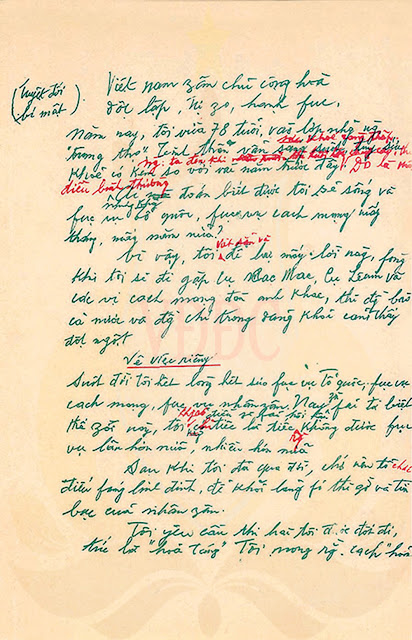 (Tuyệt đối
bí mật)
Việt nam zân chủ cộng hoà
độc lập, tự zo, hạnh fuc,
Năm nay, tôi vừa 78 tuổi, vào lớp những ng
"trung thọ". Tinh thần vẫn sáng suốt, thân thể
sức khoẻ
Khoẻ có kém so với vài năm trước đây. Đó là
Ng. ta đến khi
điều bình thường
đoán biết được tôi sẽ sống và
fục vụ tổ quốc, fục vụ cách mạng mấy
tháng, mấy năm nữa?
Vì vậy, tôi để lại mấy lời này, fòng
khi tôi sẽ đi gặp cụ Mac, cụ Lenin và
các vị cách mạng đàn anh khác, thì đ bào
cả nước và đ chí trong đảng khỏi cảm thấy
đột ngột.
Về việc riêng
Suốt đời tôi hết lòng hết sức fục vụ Tổ quốc, fục vụ
cách mạng, fục vụ nhân zân. Nay zù fải từ biệt
thế zới này, tôi không có điều gì fải hối hận,
chỉ tiếc là tiếc rằng không được fục
vụ lâu hơn nữa, nhiều hơn nữa
Sau khi tôi đã qua đời, chớ nên tổ chức
điếu fúng linh đình, để khỏi lãng fí thì zờ và tiền
bạc của nhân zân.
Tôi yêu cầu thi hài tôi được đốt đi,
tức là "hoả táng". Tôi mong rằng cách "hoả
VĐĐC